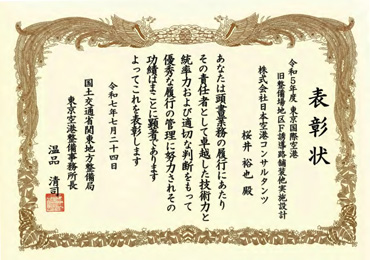 表彰状
令和5年度 東京国際空港
旧整備場地区F誘導路舗装他実施設計
株式会社日本空港コンサルタンツ
桜井 裕也 殿
あなたは頭書業務の履行にあたり
その責任者として卓越した技術力と
統率力および適切な判断をもって
優秀な履行の管理に努力されその
功績はまことに顕著であります
よってこれを表彰します
令和七年七月二十四日
国土交通省関東地方整備局
東京空港整備事務所長
温品 清司